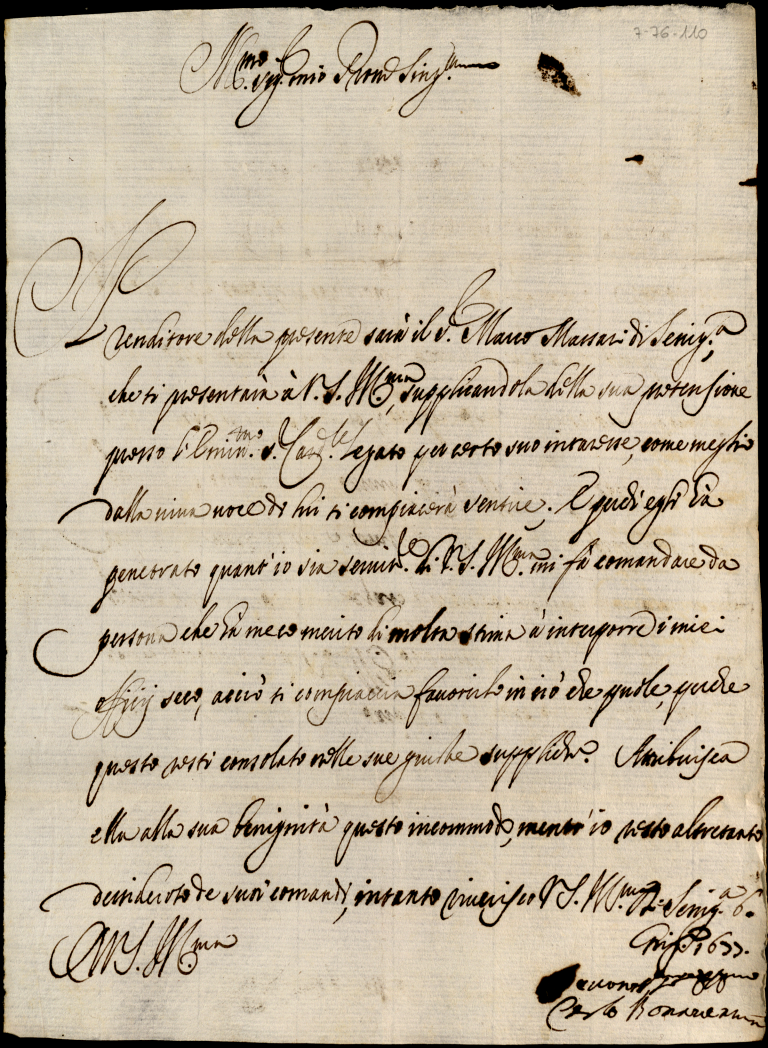 7-76-110
Ill.mo Sig. mio Pron Sing.mo
Renditore della presente sarà il S.r Marco Massari di Senig.a
che si presentarà à V. S. Ill.ma, supplicandola della sua protensione
presso l'Emin.mo S. Card.le Legato per certo suo interesse, come meglio
dalla viva voce di lui si compiacerà sentire. E perche egli hà
penetrato quant'io sia servit.re di V. S. Ill.ma mi fà comandare da
persona che hà meco merito di molta stima à interporre i miei
officij seco, acciò si compiaccia favorirlo in ciò che puole, perche
questo resti consolato nelle sue giuste suppliche. Attribuisca
ella alla sua benignità questo incommodo, mentr'io resto altretanto
desideroso de suoi comandi, intanto riverisco V. S. Ill.ma Senig.a 6
1677.
D V. S. Ill.ma
Carlo